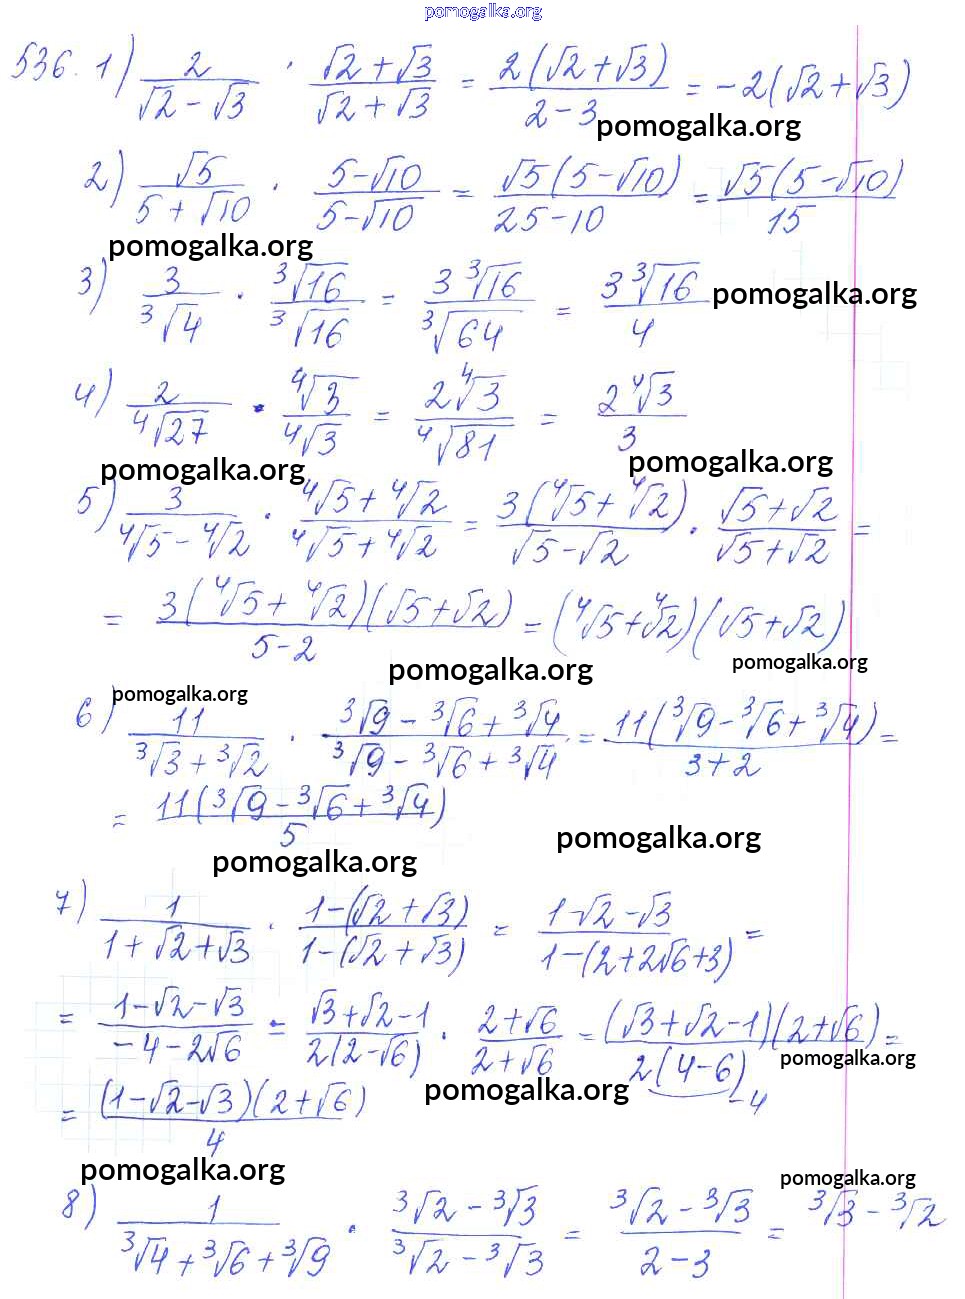 pomogalka.org
536. 1) 2/(√2 - √3) · (√2 + √3)/(√2 + √3) = 2(√2 + √3)/(2 - 3) = -2(√2 + √3)
pomogalka.org
2) √5/(5 + √10) · (5 - √10)/(5 - √10) = √5(5 - √10)/(25 - 10) = √5(5 - √10)/15
pomogalka.org
3) 3/∛4 · ∛16/∛16 = 3∛16/∛64 = 3∛16/4
pomogalka.org
4) 2/∜27 · ∜3/∜3 = 2∜3/∜81 = 2∜3/3
pomogalka.org pomogalka.org
5) 3/(∜5 - ∜2) · (∜5 + ∜2)/(∜5 + ∜2) = 3(∜5 + ∜2)/(√5 - √2) · (√5 + √2)/(√5 + √2) =
= 3(∜5 + ∜2)(√5 + √2)/(5 - 2) = (∜5 + ∜2)(√5 + √2)
pomogalka.org pomogalka.org
pomogalka.org
6) 11/(∛3 + ∛2) · (∛9 - ∛6 + ∛4)/(∛9 - ∛6 + ∛4) = 11(∛9 - ∛6 + ∛4)/(3 + 2) =
= 11(∛9 - ∛6 + ∛4)/5
pomogalka.org pomogalka.org
7) 1/(1 + √2 + √3) · (1 - (√2 + √3))/(1 - (√2 + √3)) = (1 - √2 - √3)/(1 - (2 + 2√6 + 3)) =
= (1 - √2 - √3)/(-4 - 2√6) = (√3 + √2 - 1)/(2(2 - √6)) · (2 + √6)/(2 + √6) = (√3 + √2 - 1)(2 + √6)/(2(4 - 6)) =
pomogalka.org
-4
pomogalka.org
= (1 - √2 - √3)(2 + √6)/4
pomogalka.org pomogalka.org
8) 1/(∛4 + ∛6 + ∛9) · (∛2 - ∛3)/(∛2 - ∛3) = (∛2 - ∛3)/(2 - 3) = ∛3 - ∛2